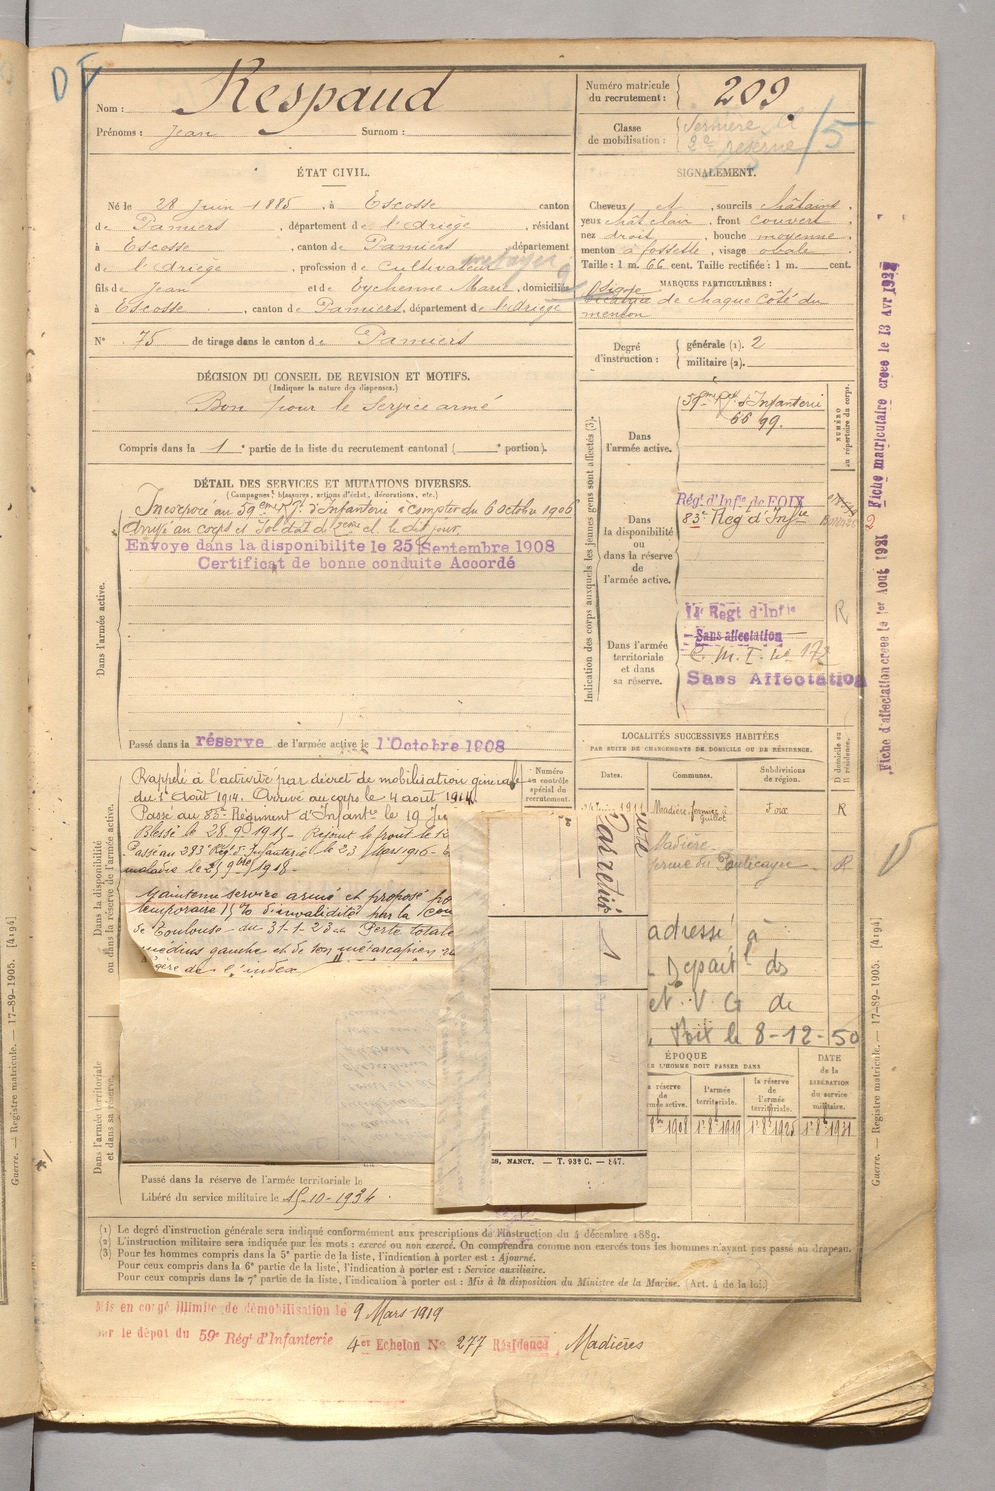 D
Nom : Respaud
Prénoms : Jean Surnom :
Numéro matricule du recrutement : 209
Classe de mobilisation : Dernière
2e réserve
15
ÉTAT CIVIL.
Né le 28 Juin 1885, à Escosse canton
de Pamiers, département de l'Ariège, résidant
à Escosse, canton de Pamiers, département
de l'Ariège, profession de Cultivateur métayer
fils de Jean et de Eychenne Marie, domiciliés
à Escosse, canton de Pamiers, département de l'Ariège
N° 75 de tirage dans le canton de Pamiers
SIGNALEMENT.
Cheveux et, sourcils châtains,
yeux chât clair, front couvert
nez droit, bouche moyenne,
menton à fossette, visage ovale
Taille : 1 m. 66 cent. Taille rectifiée : 1 m. cent.
MARQUES PARTICULIÈRES :
Cicatrice de chaque côté du
menton
Degré d'instruction : générale (1). 2
militaire (2).
DÉCISION DU CONSEIL DE REVISION ET MOTIFS.
(Indiquer la nature des dispenses.)
Bon pour le Service armé
Compris dans la 1e partie de la liste du recrutement cantonal ( e portion).
DÉTAIL DES SERVICES ET MUTATIONS DIVERSES.
(Campagnes, blessures, actions d'éclat, décorations, etc.)
Dans l'armée active.
Incorporé au 59eme Rgt d'Infanterie à compter du 6 octobre 1906
Arrivé au corps et Soldat de 2eme cl. le dit jour.
Envoyé dans la disponibilité le 25 Septembre 1908
Certificat de bonne conduite Accordé
Passé dans la réserve de l'armée active le 1 Octobre 1908
Indication des corps auxquels les jeunes gens sont affectés (3).
NUMÉRO au répertoire du corps.
Dans l'armée active.
59eme Rgt d'Infanterie
6699.
Dans la disponibilité ou dans la réserve de l'armée active.
Régt d'Infie de FOIX
83e Reg d'Infie
2
Dans l'armée territoriale et dans sa réserve.
14e Régt d'Infie
R
Sans affectation
C. M. I. no 172
Sans Affectation
Fiche d'affectation créée le 1er Aout 1921
Fiche matriculaire créée le 13 Avr
LOCALITÉS SUCCESSIVES HABITÉES
PAR SUITE DE CHANGEMENTS DE DOMICILE OU DE RÉSIDENCE.
Dates. Communes. Subdivisions de région. D domicile ou R résidence.
1911 Madière, fermier à Guillot Foix R
Madière
ferme du R
Dans la disponibilité ou dans la réserve de l'armée active.
Numéro au contrôle spécial du recrutement.
Rappelé à l'activité par décret de mobilisation générale
du 1er Août 1914. Arrivé au corps le 4 août 1914.
Passé au 83e Régiment d'Infantie le 19
Blessé le 28.9.1915 - Rejoint le front le
Passé au 283e Rég d'Infanterie le 23 Mars 1916 -
maladie le 25 9bre 1918 -
Maintenu service armé et proposé
temporaire 15 % d'invalidité par la
de Toulouse du 31-1-23 Perte totale
médius gauche et de son métacarpien
légère de l'index
Pas retiré
adressé à
Départt ds
et V G de
Foix le 8-12-50
ÉPOQUE
L'HOMME DOIT PASSER DANS
la réserve de l'armée active. l'armée territoriale. la réserve de l'armée territoriale. DATE de la LIBÉRATION du service militaire.
1908 1 8bre 1919 1 8bre 1925 1 8bre 1931
NANCY. — T. 93e C. — 847.
Dans l'armée territoriale et dans sa réserve.
Passé dans la réserve de l'armée territoriale le
Libéré du service militaire le 15-10-1934.
(1) Le degré d'instruction générale sera indiqué conformément aux prescriptions de l'instruction du 4 décembre 1889.
(2) L'instruction militaire sera indiquée par les mots : exercé ou non exercé. On comprendra comme non exercés tous les hommes n'ayant pas passé au drapeau.
(3) Pour les hommes compris dans la 5e partie de la liste, l'indication à porter est : Ajourné.
Pour ceux compris dans la 6e partie de la liste, l'indication à porter est : Service auxiliaire.
Pour ceux compris dans la 7e partie de la liste, l'indication à porter est : Mis à la disposition du Ministre de la Marine. (Art. 4 de la loi.)
Mis en congé illimité de démobilisation le 9 Mars 1919
sur le dépôt du 59e Régt d'Infanterie 4er Echelon No 277 Résidence Madières
Guerre. — Registre matricule. — 17-89-1905. [4194]
Guerre. — Registre matricule. — 17-89-1905. [4194]